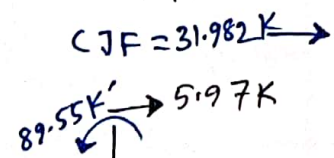 CJF = 31.982K
89.55K' 5.97K